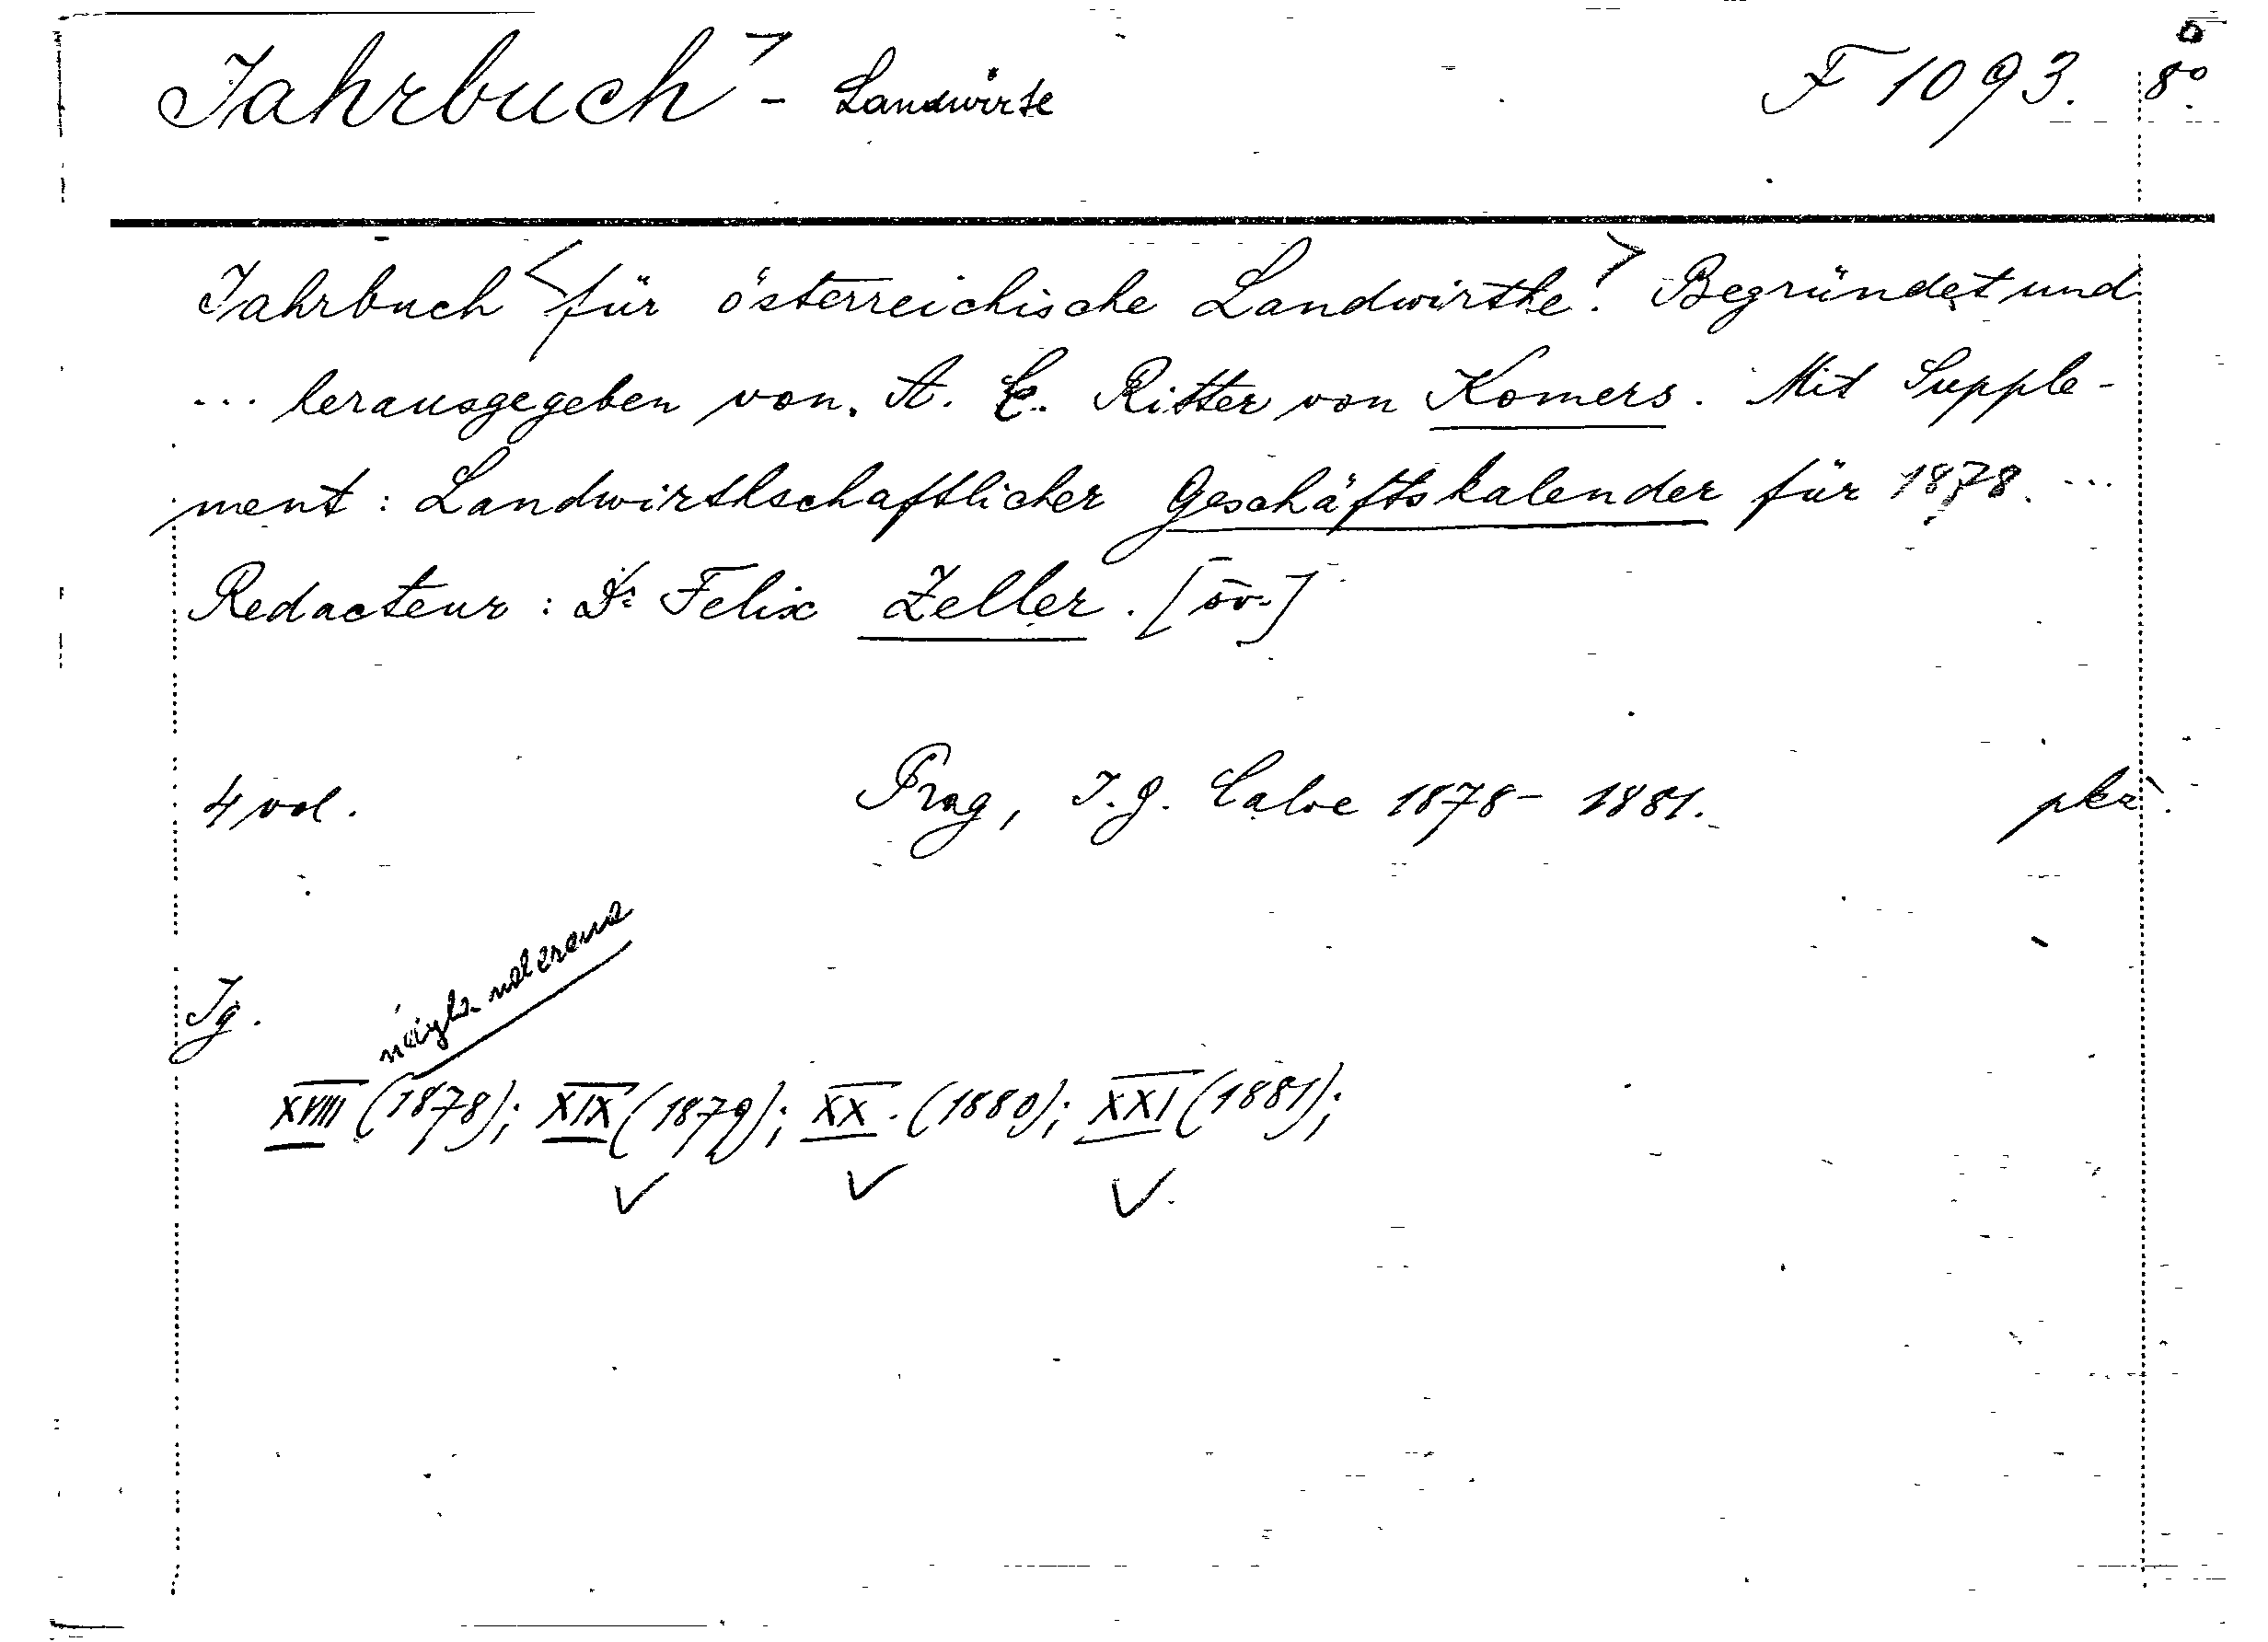 Jahrbuch - Landwirte F 1093. 8°.
Jahrbuch <für österreichische Landwirthe.> Begründet und
... herausgegeben von. A. E. Ritter von Komers. Mit Supple-
ment: Landwirthschaftlicher Geschäftskalender für 1878. ...
Redacteur: Dr Felix Zeller. [öv.]
4 vol. Prag, J. G. Calve 1878 - 1881.
Jg.
XVIII (1878); XIX (1879); XX. (1880); XXI (1881);